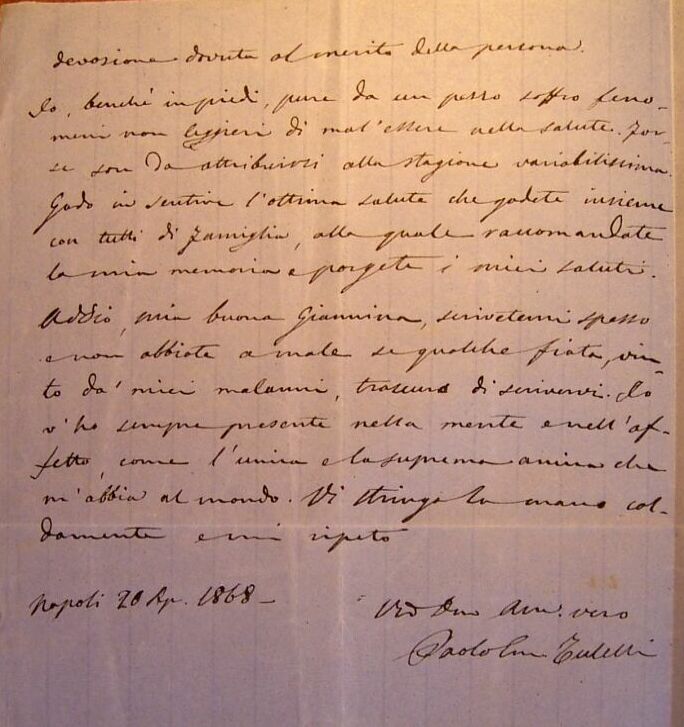 devozione dovuta al merito della persona.
Io, benchè in piedi, pure da un pezzo soffro feno-
meni non leggieri di mal'essere nella salute. For-
se son da attribuirsi alla stagione variabilissima.
Godo in sentire l'ottima salute che godete insieme
con tutti di famiglia, alla quale raccomandate
la mia memoria e porgete i miei saluti.
Addio, mia buona Giannina, scrivetemi spesso
e non abbiate a male se qualche fiata, vin-
to da' miei malanni, trascuro di scrivervi. Io
v'ho sempre presente nella mente e nell'af-
fetto, come l'unica e la suprema amica che
m'abbia al mondo. Vi stringo la mano cal-
damente e mi ripeto
Napoli 20 Ap. 1868 –
Am. vero